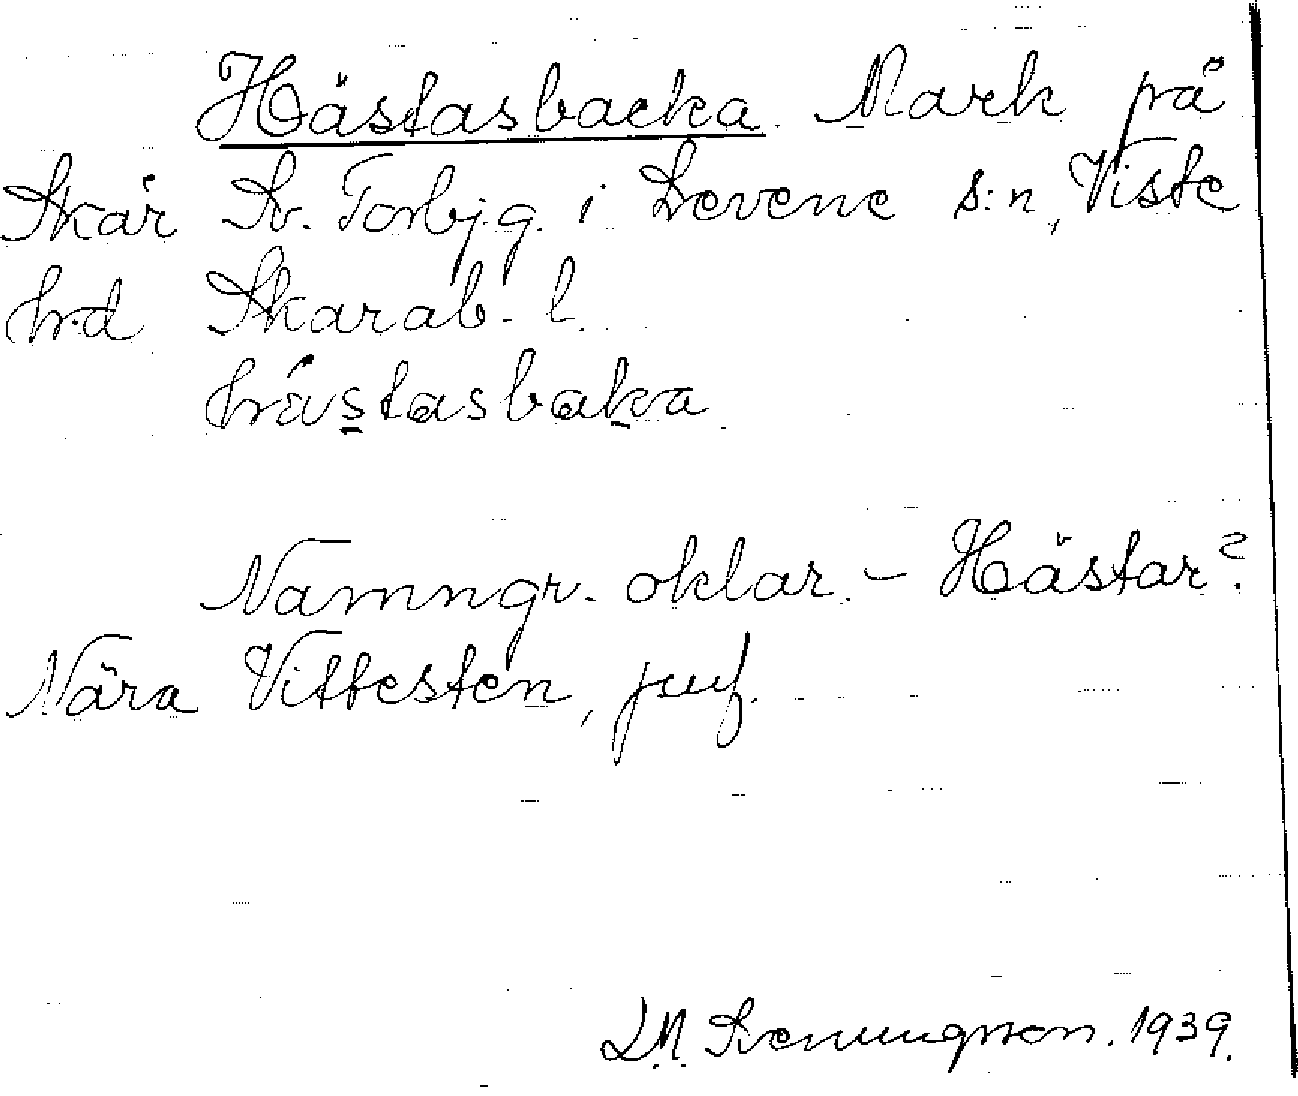 Hästasbacka. Mark på
Skår St. Torbj.g. i Levene s:n, Viste
h:d Skarab. l.
hästasbaka
Namngr. oklar. – Hästar?
Nära Vittesten, jmf.
1939.